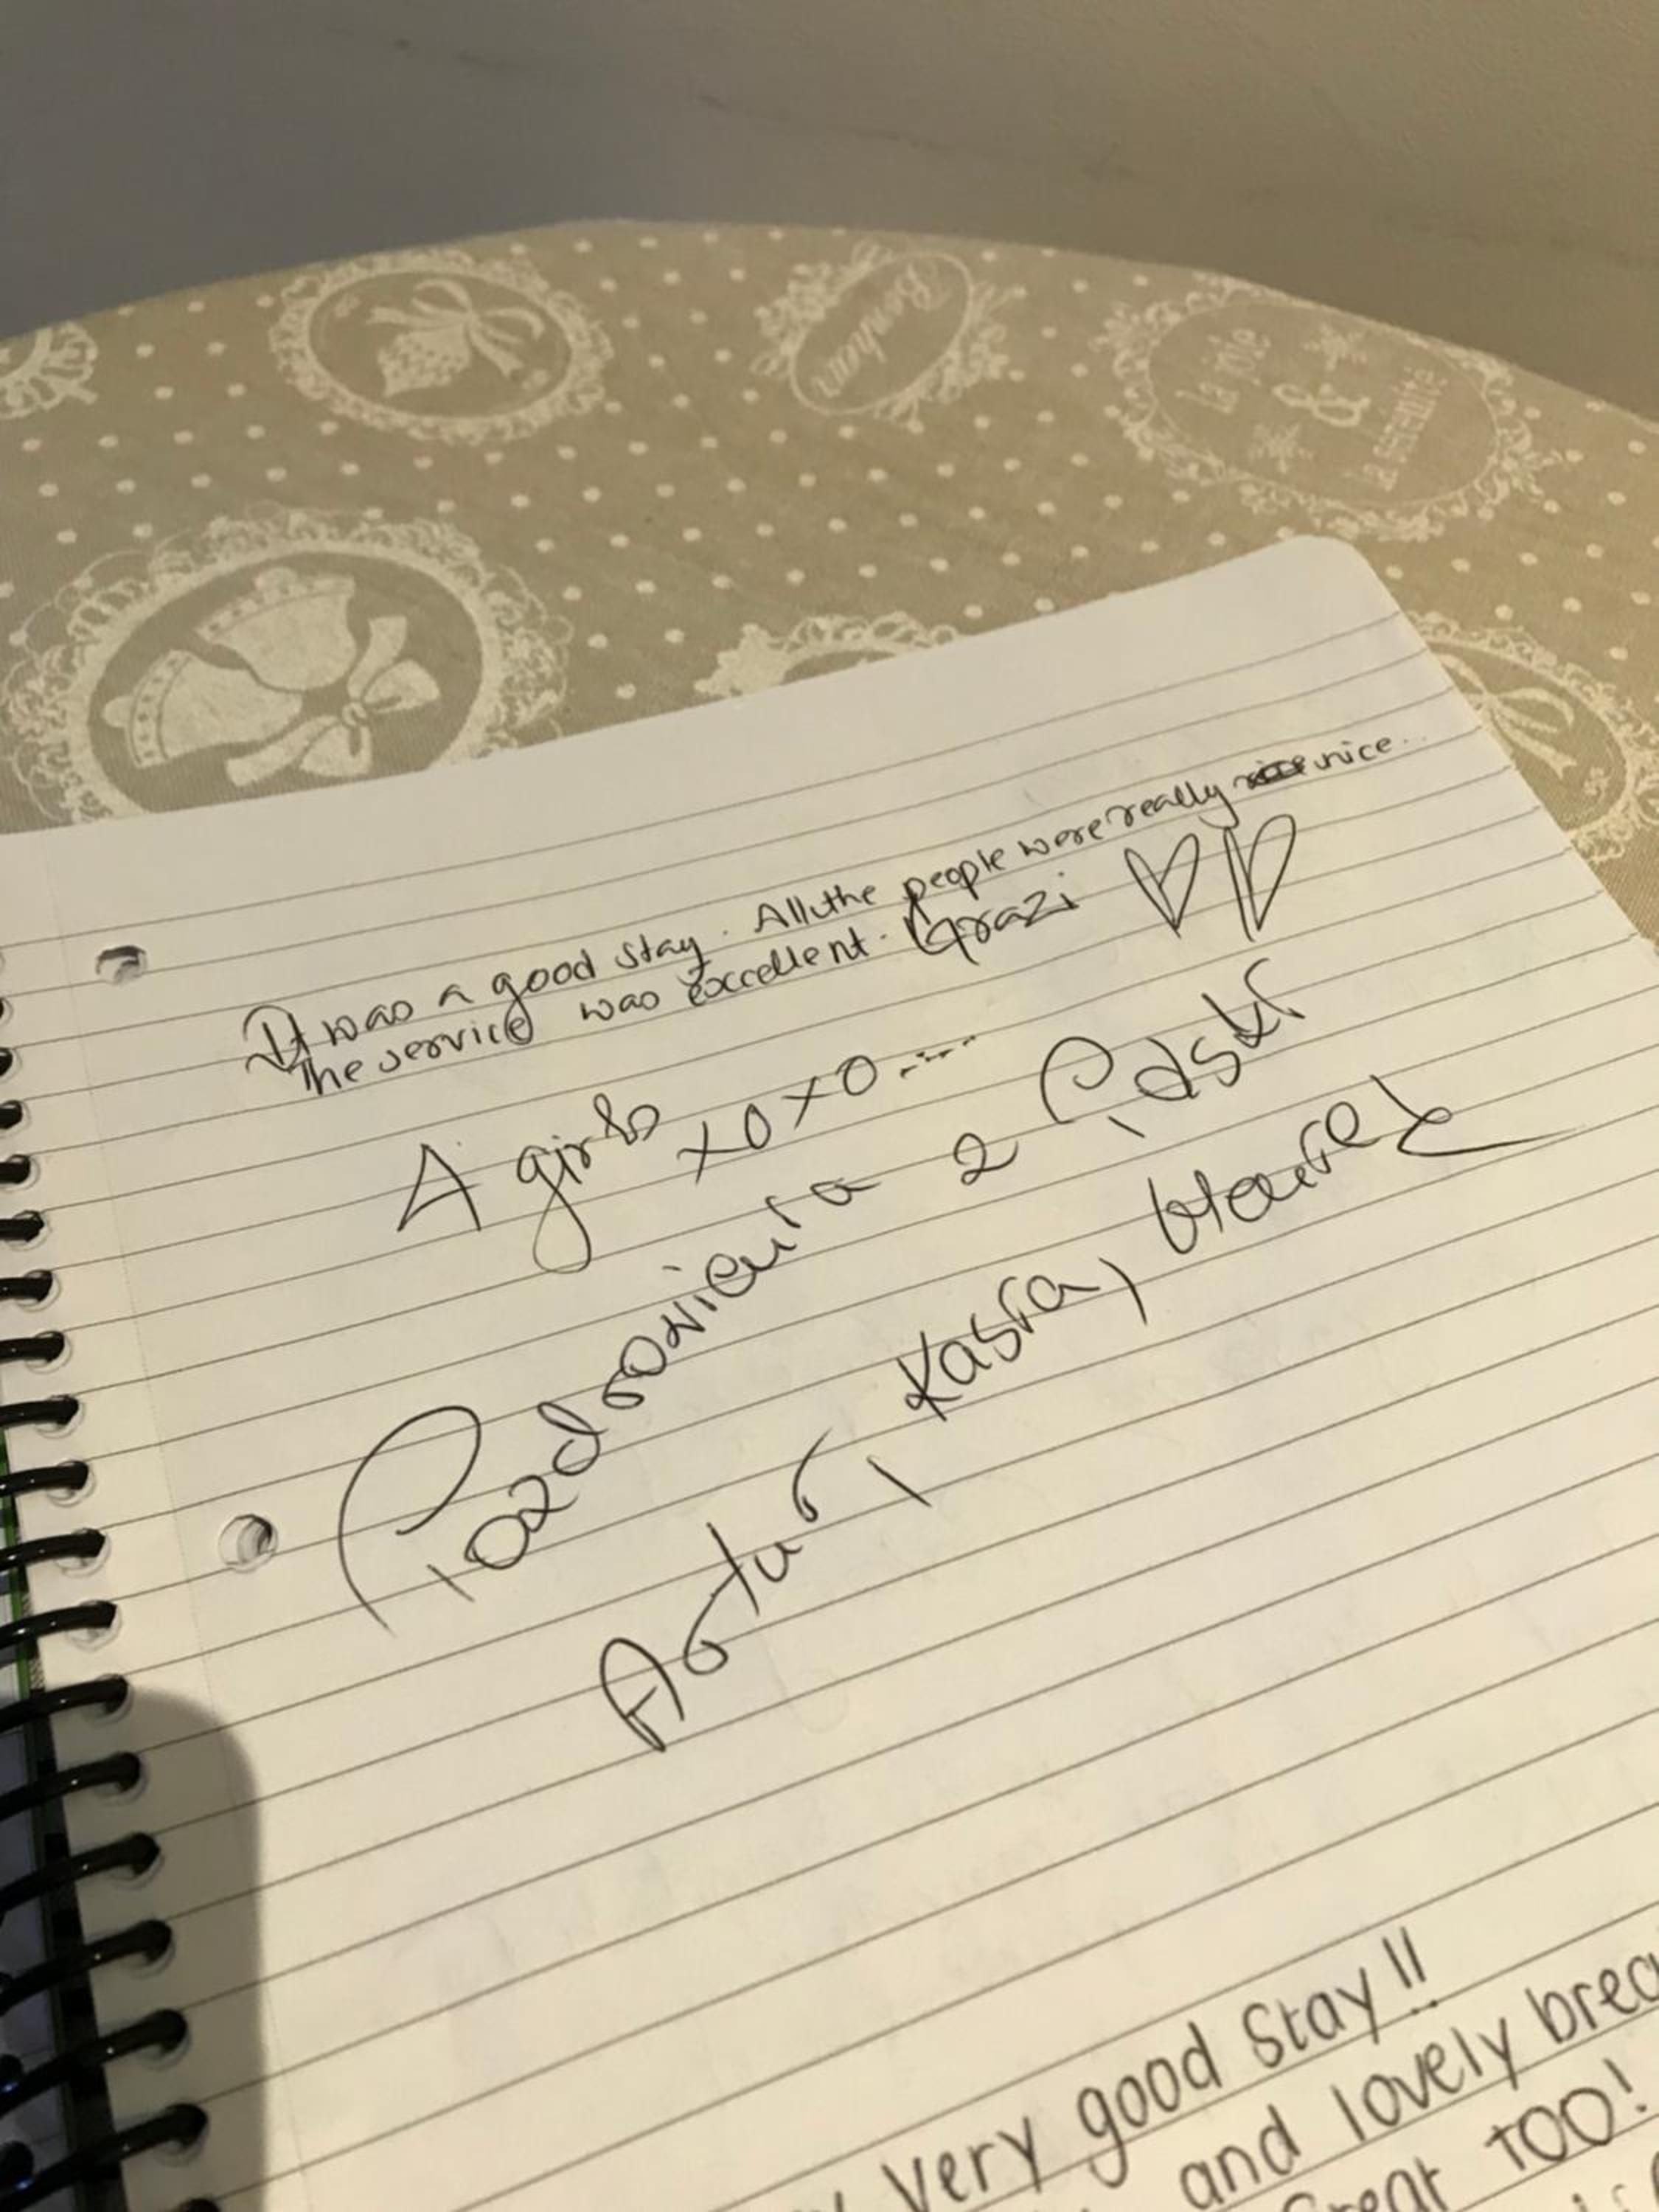 Bonheur
La joie
&
la sérénité
It was a good stay. All the people were really nice..
The service was excellent. Grazi
4 girls
xoxo ----
Pozdrowienia z Polski
Artur, Kasia,
Very good Stay!!
and lovely brea
TOO!